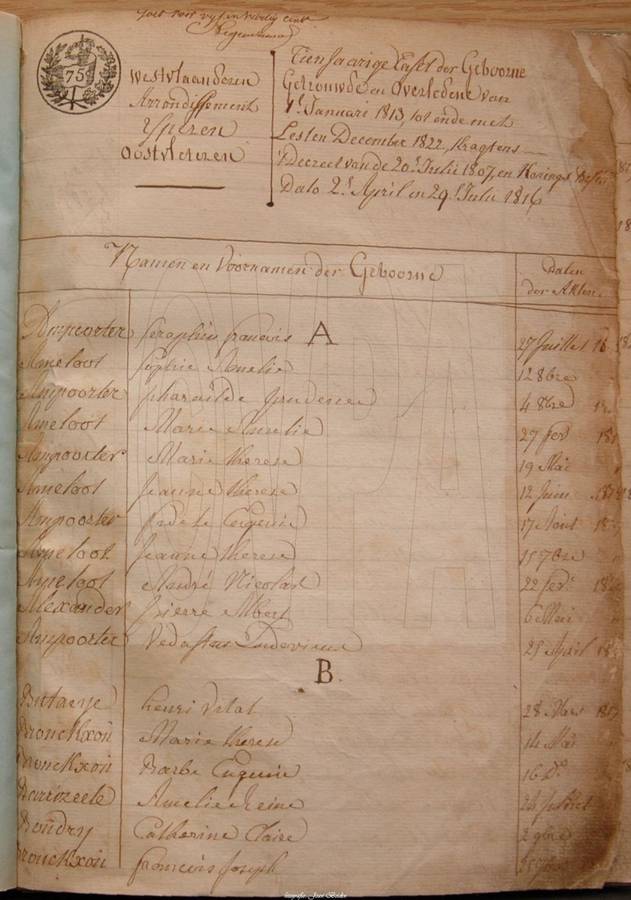 75
Westvlaanderen
Arrondissement
Yperen
Oostvleteren
Tienjaarige Tafel der Geboorne
Getrouwde en Overledene van
1.e Januari 1813, tot ende met
Lesten December 1822, kragtens
Decreet van de 20.e Julii 1807, en Konings
Dato 2.e April en 29.e Julii 1816
Namen en Voornamen der Geboorne
Daten der Akten.
A
Ampoorter Seraphin francois 27 Juillet 16
Ameloot Sophie Amelie 12 8bre
Ampoorter pharailde prudence 4 8bre
Ameloot Marie Amelie 27 fer
Ampoorter Marie therese 19 Mai
Ameloot jeanne therese 12 Juin
Ampoorter Eugenie 17 Aout
Ameloot jeanne therese 15 7bre
Ameloot André Nicolas 22 fer.
Alexander pierre Albert 6 Mai
Ampoorter Vedastus Ludovicus 25 April
B
Butaye henri vital 28 Mars
Bronckxon Marie therese 14 Mai
Bronckxon Barbe Eugenie 16 D.o
Barizeele Amelie Reine
Boudry Catherine Claire 2 9bre
Bronckxon francois Joseph